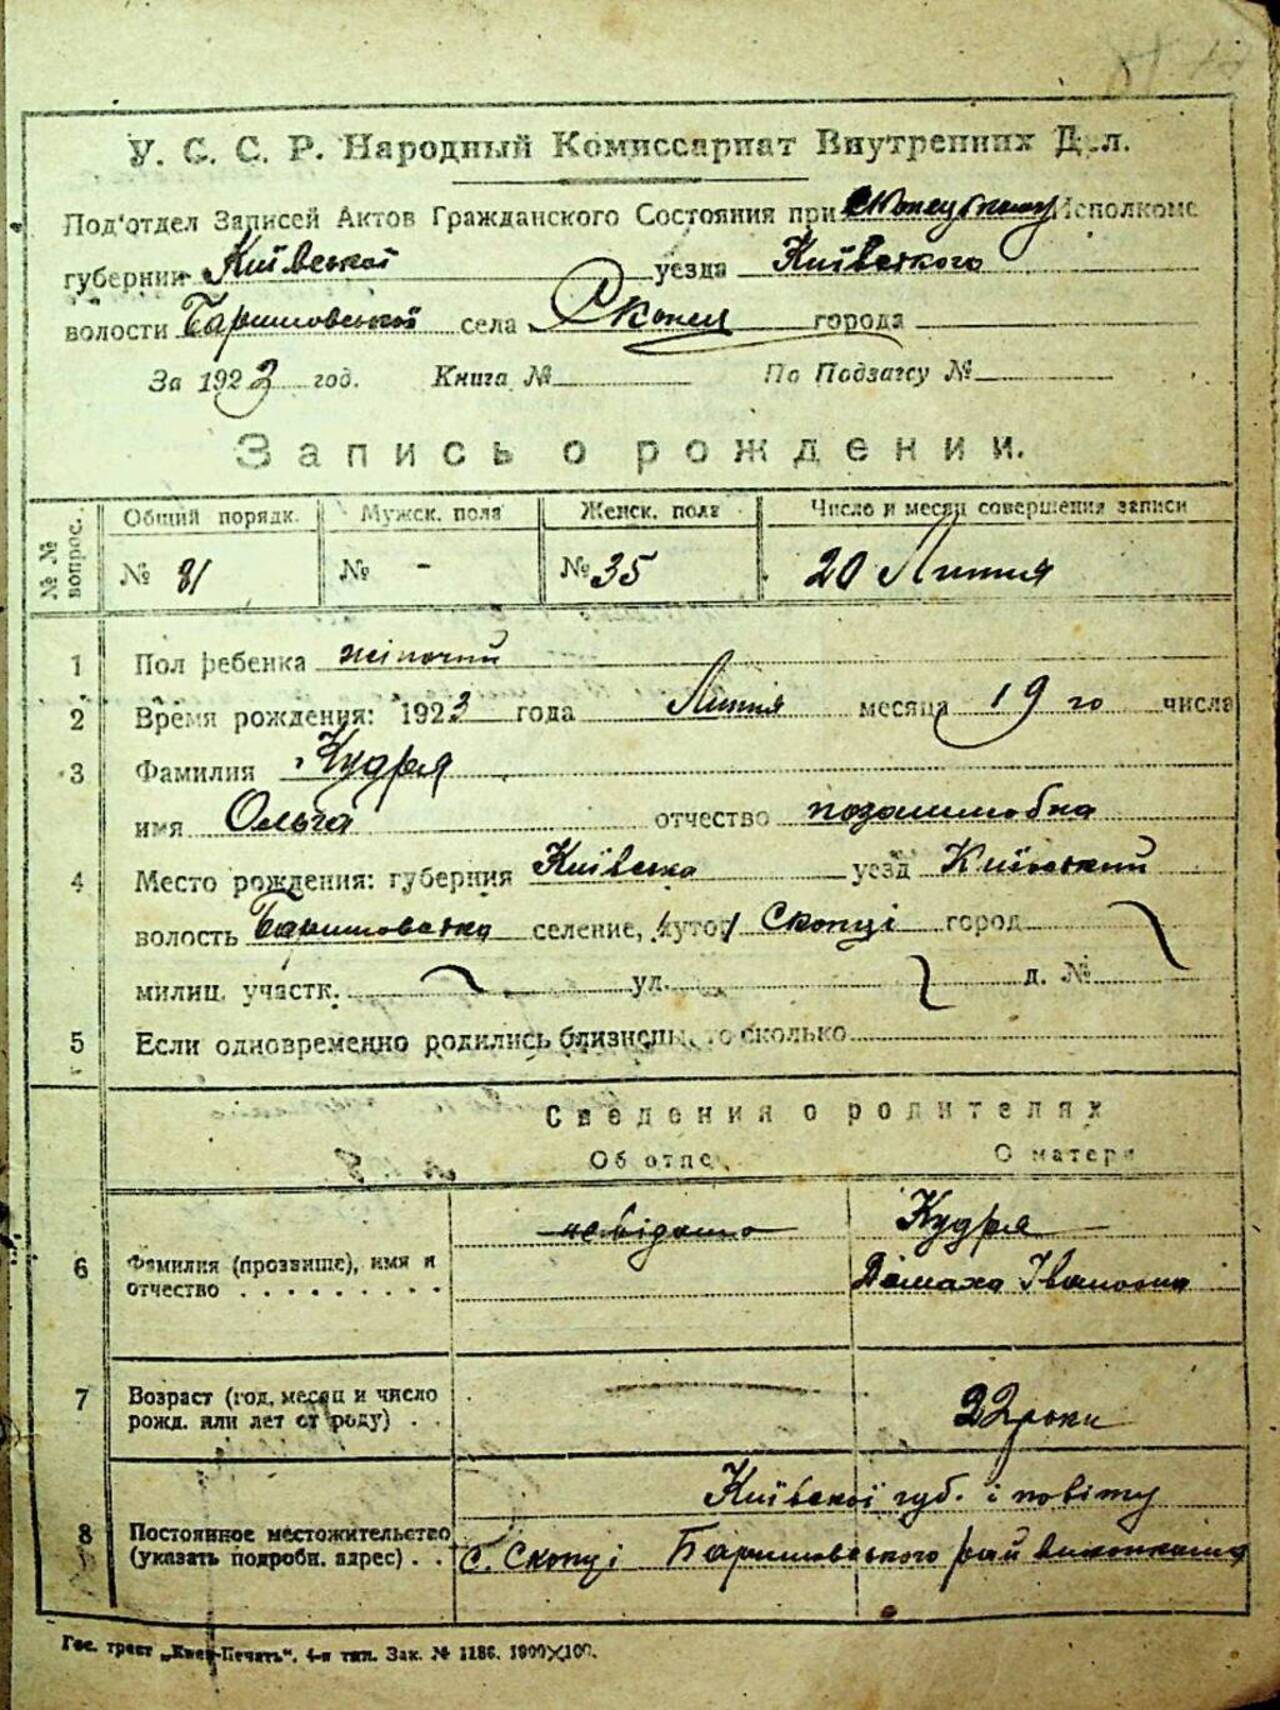 У. С. С. Р. Народный Комиссариат Внутренних Дел.
Под'отдел Записей Актов Гражданского Состояния при Скопецькому Исполкоме
губернии Київської уезда Київского
волости Баришовської села Скопци города
За 1923 год. Книга № По Подзагсу №
Запись о рождении.
№ № вопрос. Общий порядк. Мужск. пола Женск. пола Число и месяц совершения записи
№ 81 № - № 35 20 Липня
1 Пол ребенка жіночий
2 Время рождения: 1923 года Липня месяца 19 го числа
3 Фамилия Кудря
имя Ольга отчество позашлюбна
4 Место рождения: губерния Київська уезд Київський
волость Баришовська селение, хутор Скопці город
милиц. участк. ул. д. №
5 Если одновременно родились близнецы, то сколько
Сведения о родителях
Об отце О матери
6 Фамилия (прозвище), имя и отчество невідомо Кудря
Домаха Івановна
7 Возраст (год, месяц и число рожд. или лет от роду) 22 роки
Київської губ. і повіту
8 Постоянное местожительство (указать подробн. адрес) С. Скопці Баришовського рай виконкома
Гос. трест „Киев-Печать“. 4-я тип. Зак. № 1186. 1000×100.